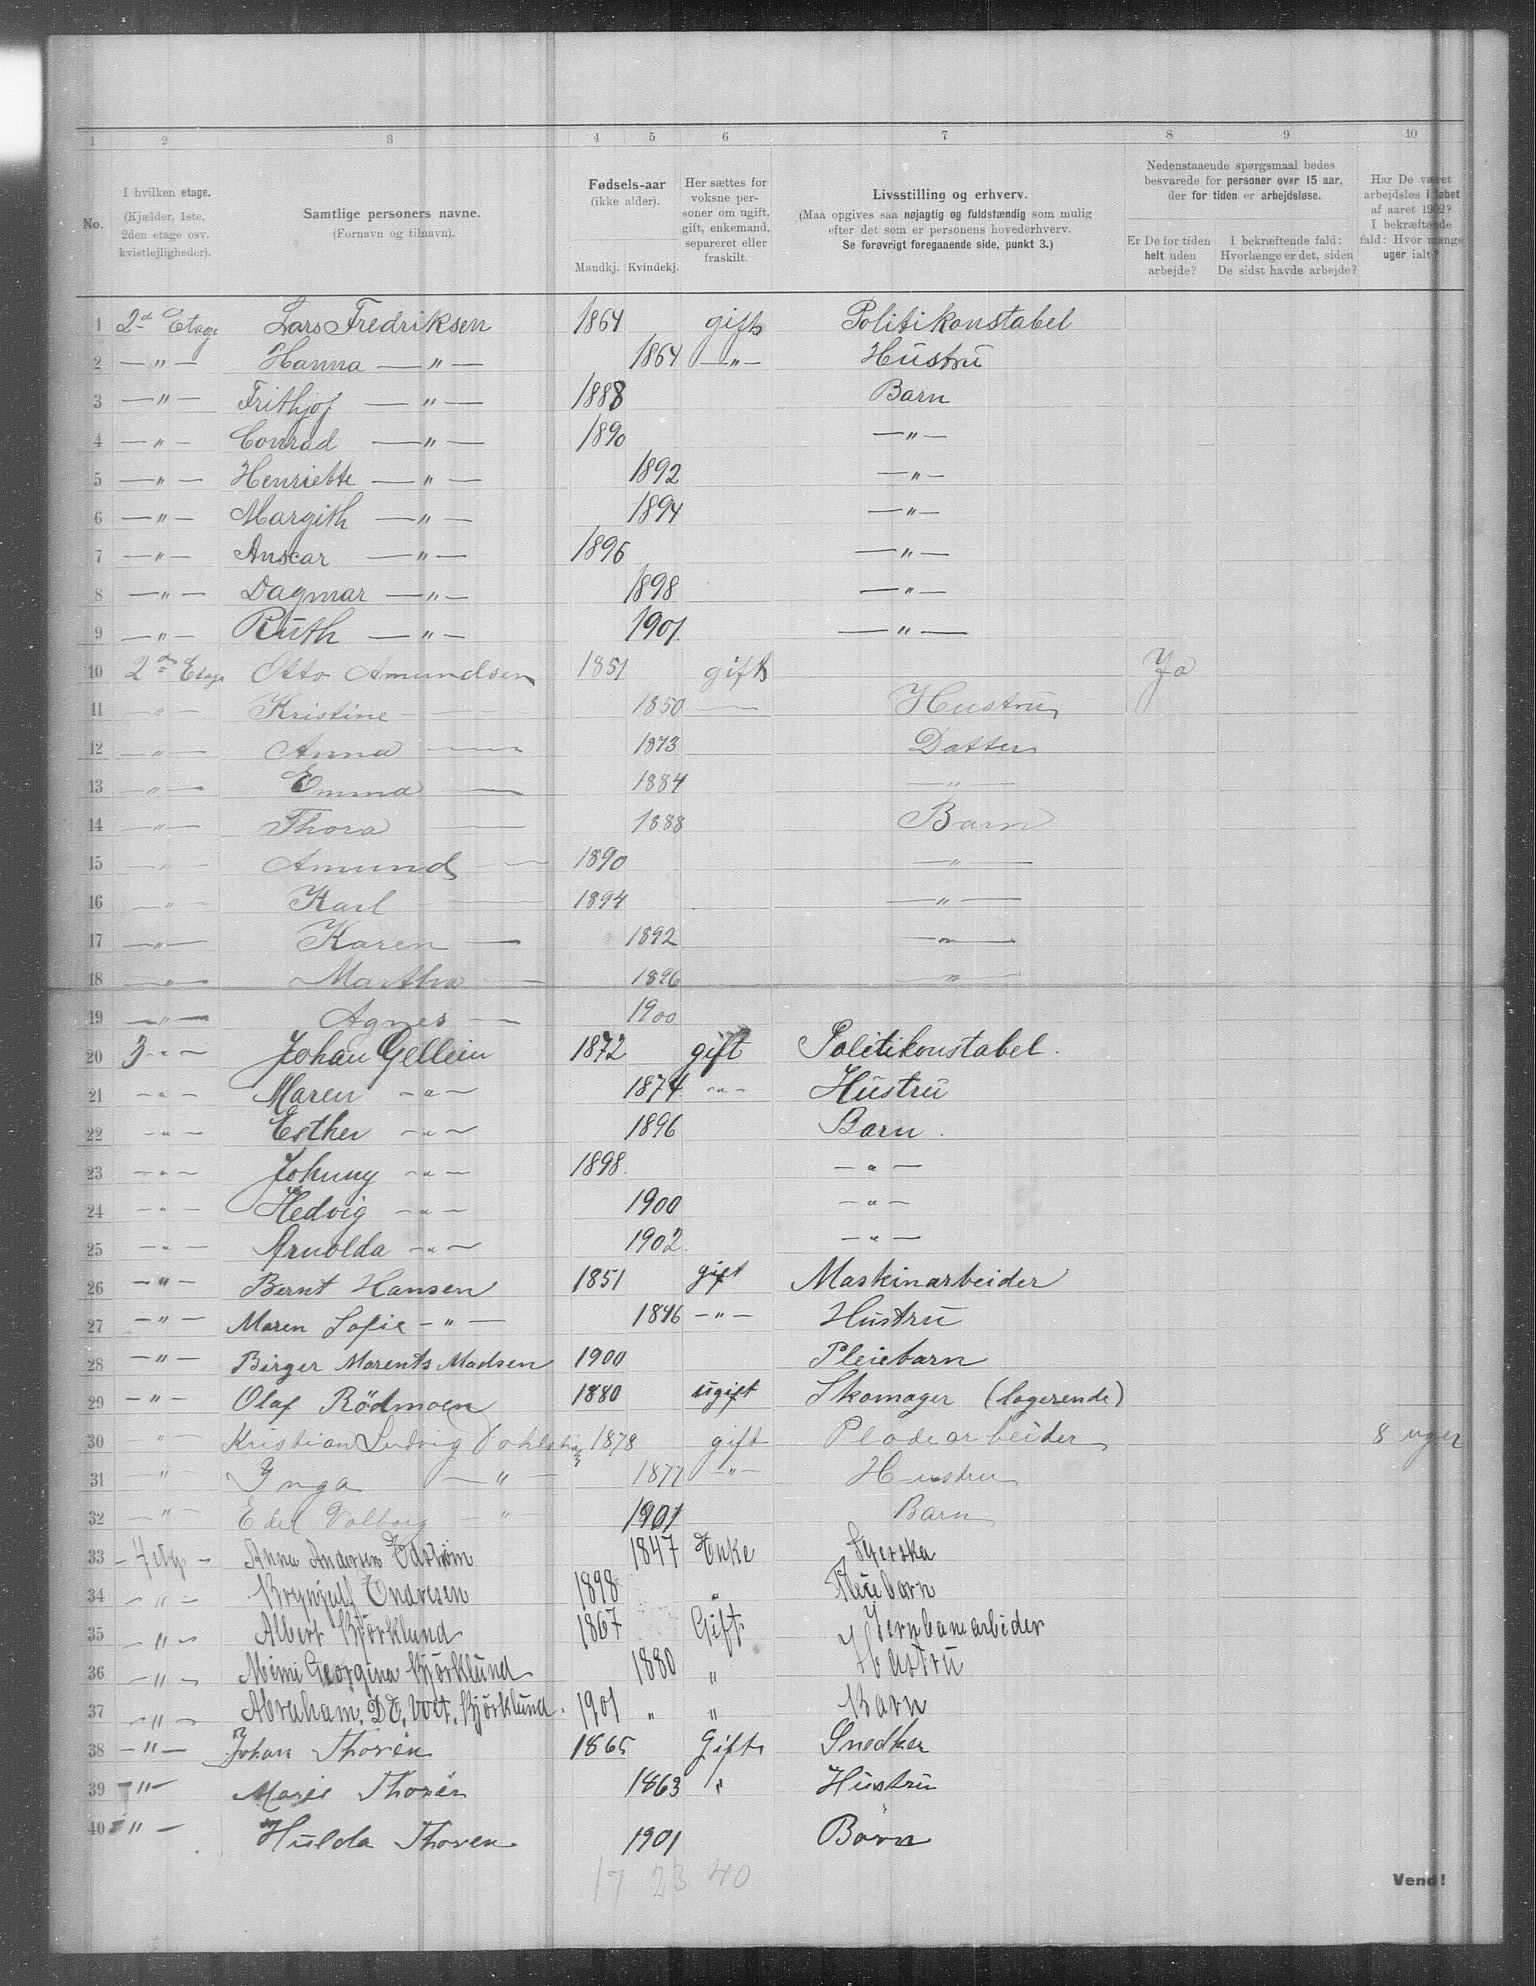 1 2 3 4 5 6 7 8 9 10
No.
I hvilken etage.
(Kjælder, 1ste,
2den etage osv.
kvistlejligheder).
Samtlige personers navne.
(Fornavn og tilnavn).
Fødsels-aar
(ikke alder).
Mandkj. Kvindekj.
Her sættes for
voksne per-
soner om ugift,
gift, enkemand,
separeret eller
fraskilt.
Livsstilling og erhverv.
(Maa opgives saa nøjagtig og fuldstændig som mulig
efter det som er personens hovederhverv.
Se forøvrigt foregaaende side, punkt 3.)
Nedenstaaende spørgsmaal bedes
besvarede for personer over 15 aar,
der for tiden er arbejdsløse.
Er De for tiden
helt uden
arbejde?
I bekræftende fald:
Hvorlænge er det, siden
De sidst havde arbejde?
Har De været
arbejdsløs i løbet
af aaret 1902?
I bekræftende
fald: Hvor mange
uger ialt?
1 2d Etage Lars Fredriksen 1864 gift Politikonstabel
2 — " — Hanna — " — 1864 — " — Hustru
3 — " — Frithjof — " — 1888 Barn
4 — " — Conrad — " — 1890 — " —
5 — " — Henriette — " — 1892 — " —
6 — " — Margith — " — 1894 — " —
7 — " — Anscar — " — 1896 — " —
8 — " — Dagmar — " — 1898 — " —
9 — " — Ruth — " — 1901 — " —
10 2den Etage Otto Amundsen 1851 gift Ja
11 — " — Kristine — 1850 — Hustru
12 — " — Anna — 1873 Datter
13 — " — Emma — 1884 — " —
14 — " — Thora — 1888 Barn
15 — " — Amund — 1890 — " —
16 — " — Karl — 1894 — " —
17 — " — Karen — 1892 — " —
18 — " — Martha — 1896 — " —
19 — " — Agnes — 1900
20 3 — " — Johan Gellein 1872 gift Politikonstabel.
21 — " — Maren — " — 1874 — " — Hustru
22 — " — Esther — " — 1896 Barn.
23 — " — Johnny — " — 1898. — " —
24 — " — Hedvig — " — 1900 — " —
25 — " — Arnolda — " — 1902. — " —
26 — " — Bernt Hansen 1851 gift Maskinarbeider
27 — " — Maren Sofie — " — 1846 — " — Hustru
28 — " — Birger Marents Madsen 1900 Pleiebarn
29 — " — Olaf Rödmoen 1880 ugift Skomager (logerende)
30 — " — Kristian Ludvig 1878 gift Pladearbeider 8 uger
31 — " — Ynga — " — 1877 — " — Hustru
32 — " — Edel Valborg — " — 1901 Barn
33 — 4 etg — Anna Andersen Edström 1847 Enke Syerska
34 — " — Brynjulf Endresen 1898 " Pleiebarn
35 — " — Albert Björklund 1867 Gift Jernbanearbeider
36 — " — Mimi Georgina Björklund 1880 " Hustru
37 — " — Abraham. D.E. Voet. Björklund. 1901 " " Barn
38 — " — Johan Thorén 1865 Gift Snedker
39 — " — Marie Thorén 1863 " Hustru
40 — " — Hulda Thoren 1901 Barn
17 23 40
Vend!